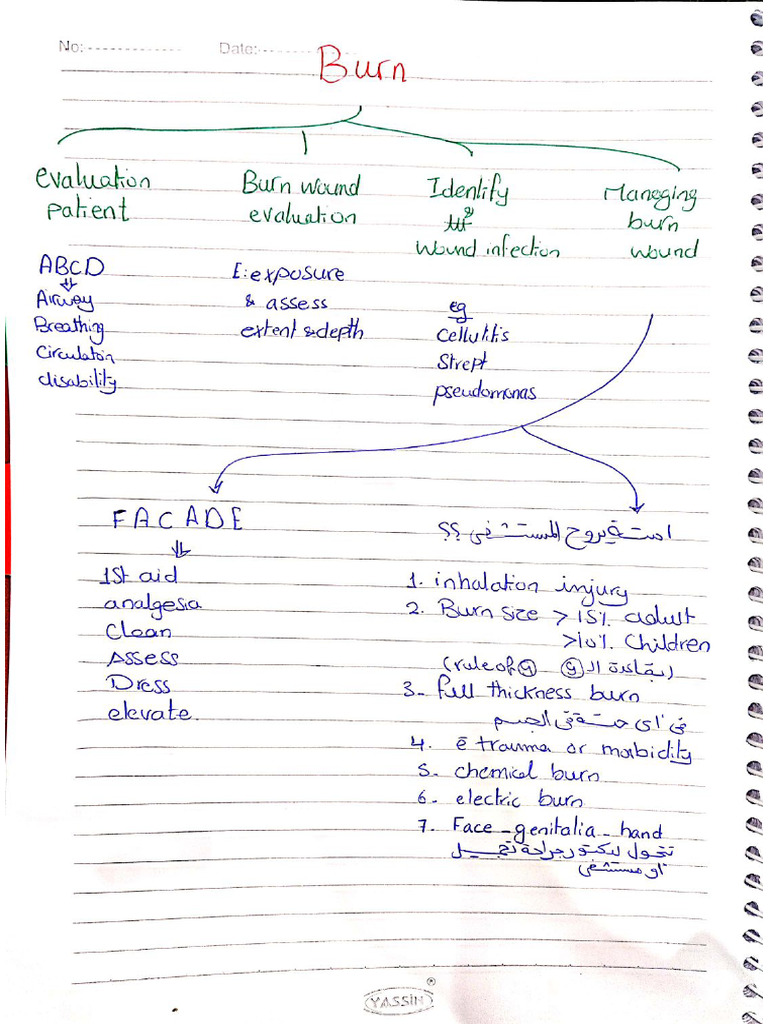 No:
Date:
Burn
evaluation
patient
ABCD
Airway
Breathing
Circulation
disability
Burn wound
evaluation
E: exposure
& assess
extent & depth
Identify
wound infection
eg
Cellulitis
Strept
pseudomonas
Managing
burn
wound
FACADE
1st aid
analgesia
Clean
Assess
Dress
elevate.
امتى يروح المستشفى ؟؟
1. inhalation injury
2. Burn size > 15% adult
>10% Children
(rule of 9 بقاعدة الـ 9)
3- full thickness burn
فى اى حتة فى الجسم
4. c̄ trauma or morbidity
5- chemical burn
6- electric burn
7. Face - genitalia - hand
تتحول لدكتور جراحة تجميل
او مستشفى
YASSIN